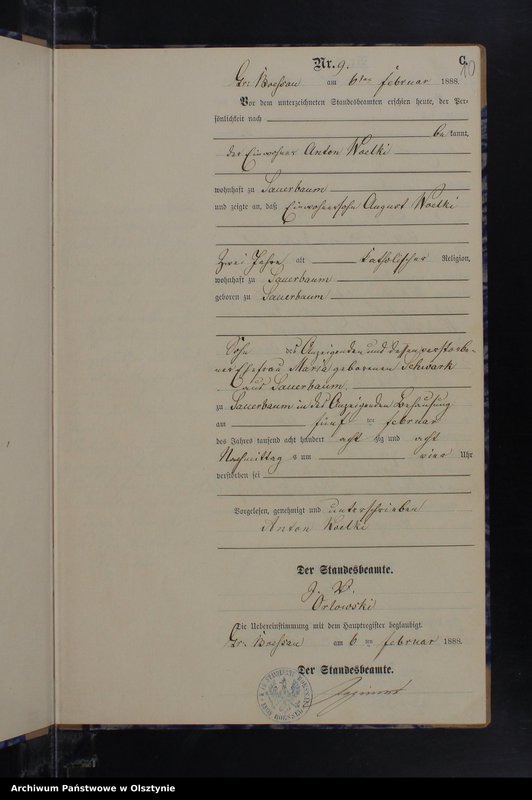 C.
Nr. 9.
10
Gr. Boessau am 6ten Februar 1888.
Vor dem unterzeichneten Standesbeamten erschien heute, der Per-
sönlichkeit nach
be kannt,
der Einwohner Anton Woelki
wohnhaft zu Sauerbaum
und zeigte an, daß Einwohnersohn August Woelki
Zwei Jahre alt katholischer Religion,
wohnhaft zu Sauerbaum
geboren zu Sauerbaum
Sohn des Anzeigenden und dessen verstorbe-
ner Ehefrau Maria geborenen Schwark
aus Sauerbaum
zu Sauerbaum in des Anzeigenden Behausung
am fünf ten Februar
des Jahres tausend acht hundert acht zig und acht
Nachmittag s um vier Uhr
verstorben sei
Vorgelesen, genehmigt und unterschrieben
Anton Woelki
Der Standesbeamte.
J. V.
Orlowski
Die Uebereinstimmung mit dem Hauptregister beglaubigt.
Gr. Boessau am 6 ten Februar 1888.
Der Standesbeamte.
Archiwum Państwowe w Olsztynie